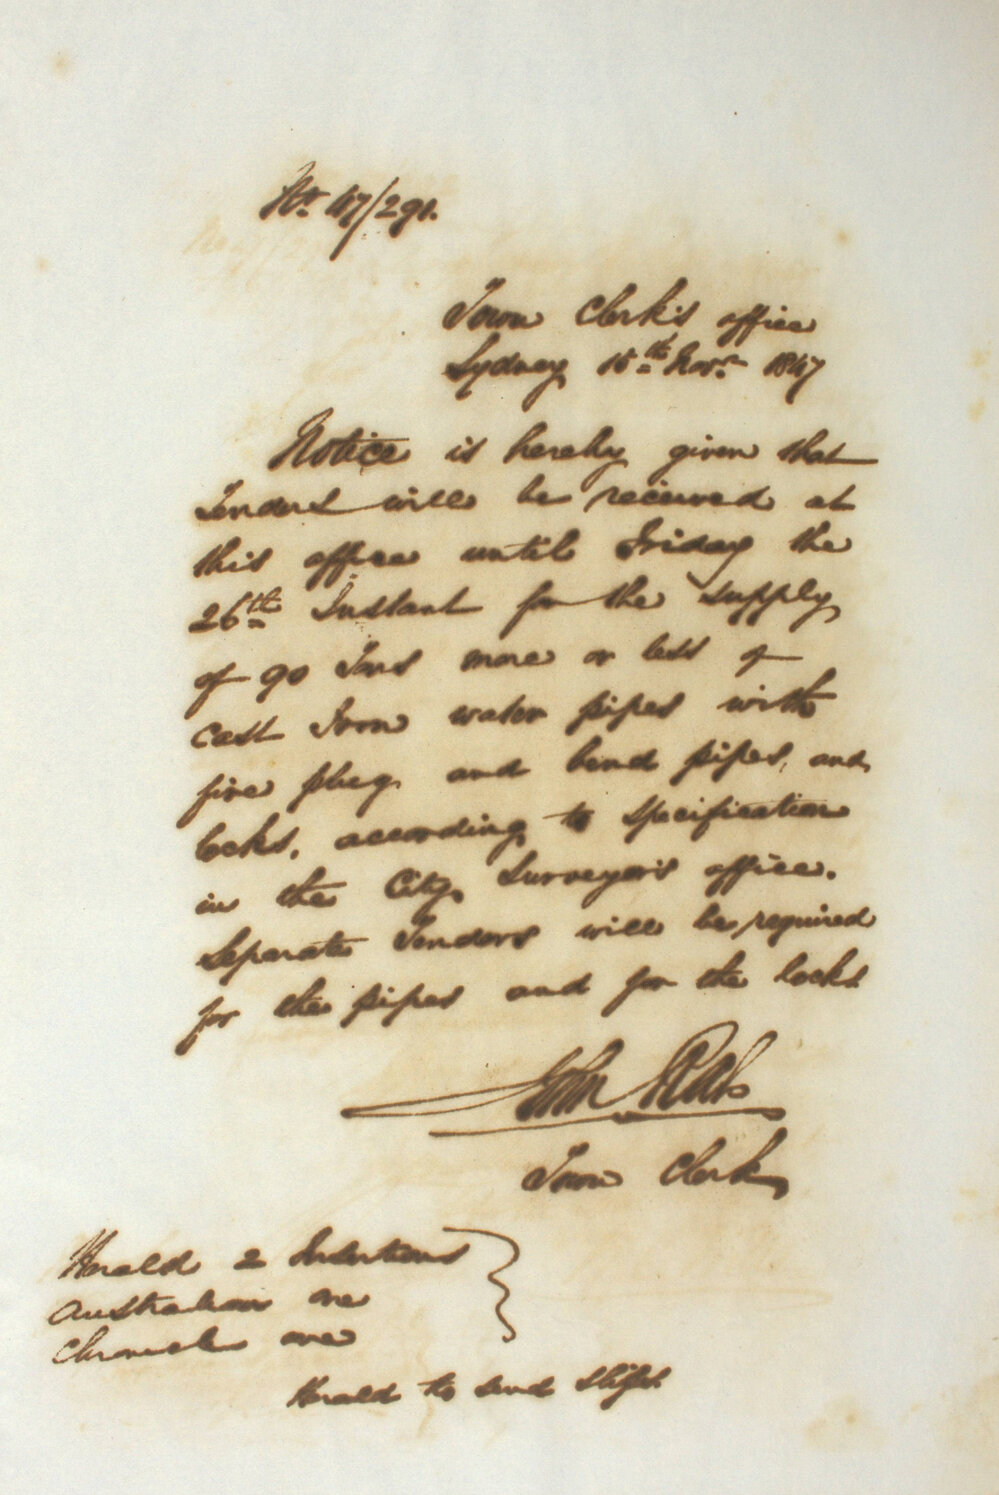 No. 47/291.
Town Clerk's office
Sydney 15th Novr. 1847
Notice is hereby given that
Tenders will be received at
this office until Friday the
26th Instant for the supply
of 90 Tons more or less of
Cast Iron water pipes with
fire plug and bend pipes, and
locks, according to specification
in the City Surveyor's office.
Separate Tenders will be required
for the pipes and for the locks
John Rae
Town Clerk
Herald 2 Insertions
Australian one
Chronicle one
Herald to send slips